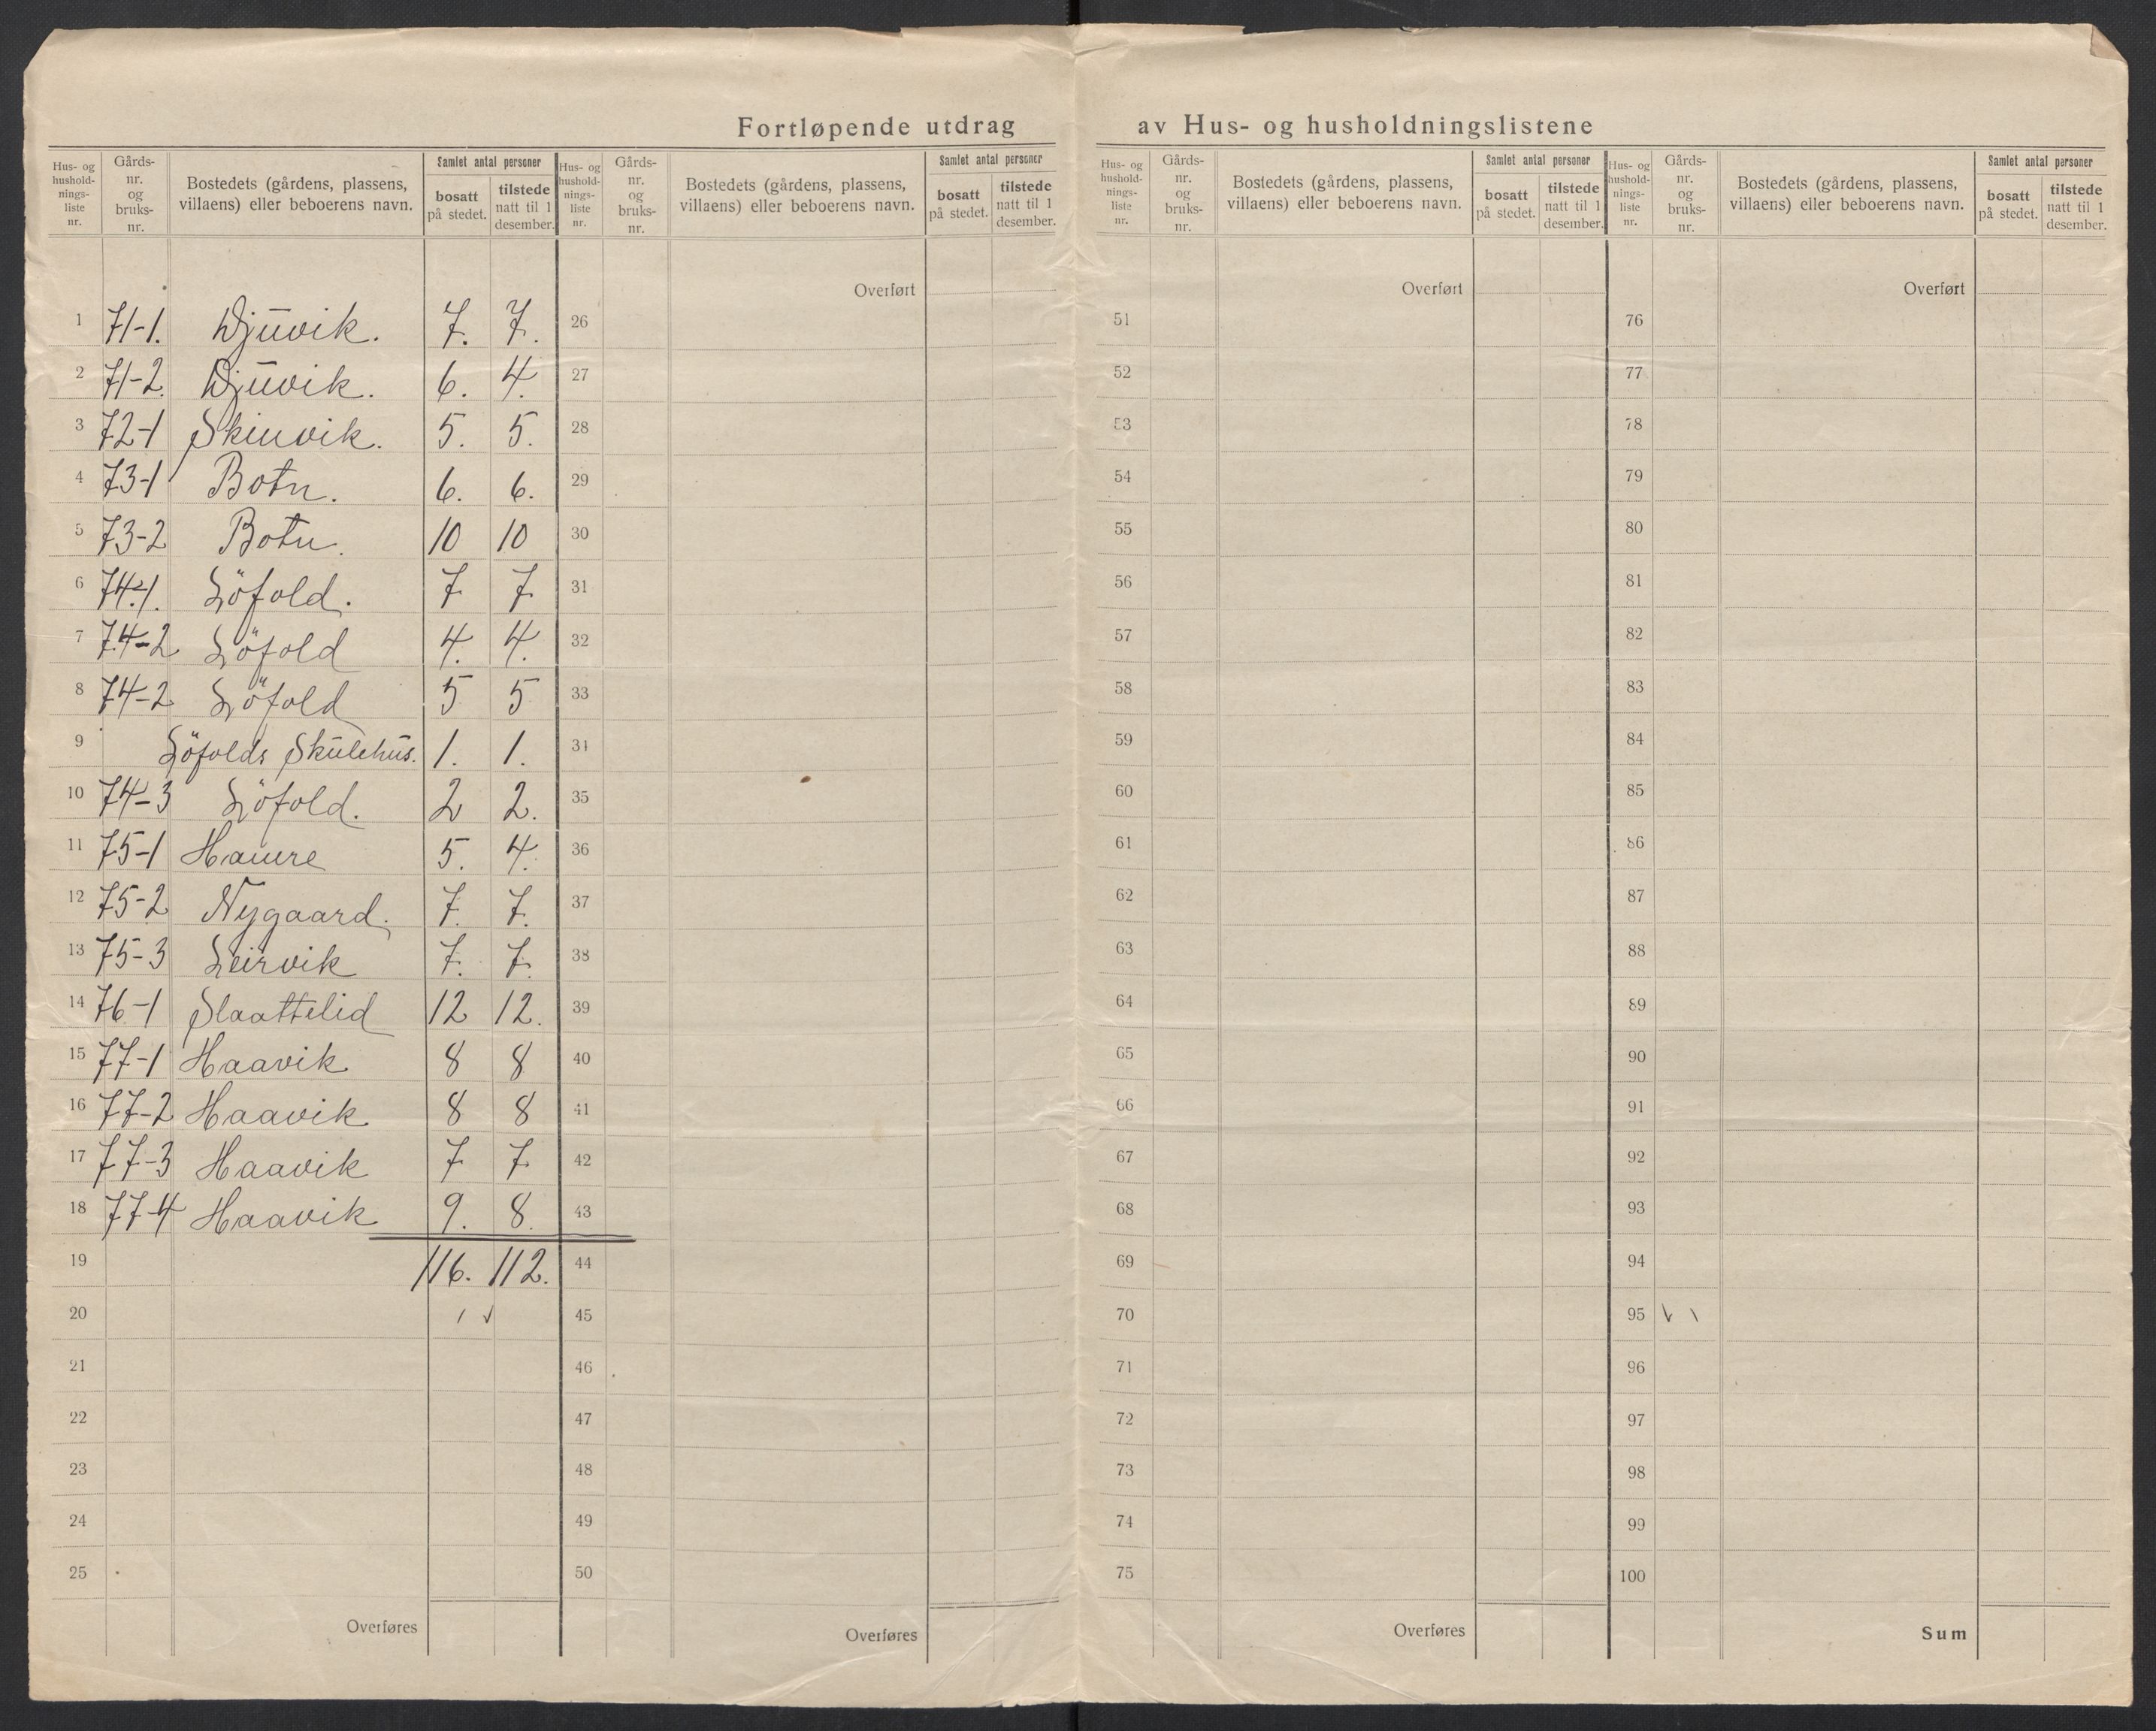 Fortløpende utdrag av Hus- og husholdningslistene
Hus- og hushold-nings-liste nr. Gårds-nr. og bruks-nr. Bostedets (gårdens, plassens, villaens) eller beboerens navn. Samlet antal personer bosatt på stedet. tilstede natt til 1 desember.
1 71-1. Djuvik. 7. 7.
2 71-2. Djuvik. 6. 4.
3 72-1 Skeivik. 5. 5.
4 73-1 Botn. 6. 6.
5 73-2 Botn. 10 10
6 74-1. Löfold. 7 7
7 74-2 Löfold 4. 4.
8 74-2 Löfold 5 5
9 Löfolds Skulehus. 1. 1.
10 74-3 Löfold. 2 2.
11 75-1 Hamre 5. 4.
12 75-2 Nygaard. 7. 7.
13 75-3 Leirvik 7. 7.
14 76-1 Slaattelid 12 12.
15 77-1 Haavik 8 8
16 77-2 Haavik 8 8
17 77-3 Haavik 7 7
18 77-4 Haavik 9. 8.
19 116. 112.
20
21
22
23
24
25
Overføres
Hus- og hushold-nings-liste nr. Gårds-nr. og bruks-nr. Bostedets (gårdens, plassens, villaens) eller beboerens navn. Samlet antal personer bosatt på stedet. tilstede natt til 1 desember.
Overført
26
27
28
29
30
31
32
33
34
35
36
37
38
39
40
41
42
43
44
45
46
47
48
49
50
Overføres
Hus- og hushold-nings-liste nr. Gårds-nr. og bruks-nr. Bostedets (gårdens, plassens, villaens) eller beboerens navn. Samlet antal personer bosatt på stedet. tilstede natt til 1 desember.
Overført
51
52
53
54
55
56
57
58
59
60
61
62
63
64
65
66
67
68
69
70
71
72
73
74
75
Overføres
Hus- og hushold-nings-liste nr. Gårds-nr. og bruks-nr. Bostedets (gårdens, plassens, villaens) eller beboerens navn. Samlet antal personer bosatt på stedet. tilstede natt til 1 desember.
Overført
76
77
78
79
80
81
82
83
84
85
86
87
88
89
90
91
92
93
94
95
96
97
98
99
100
Sum